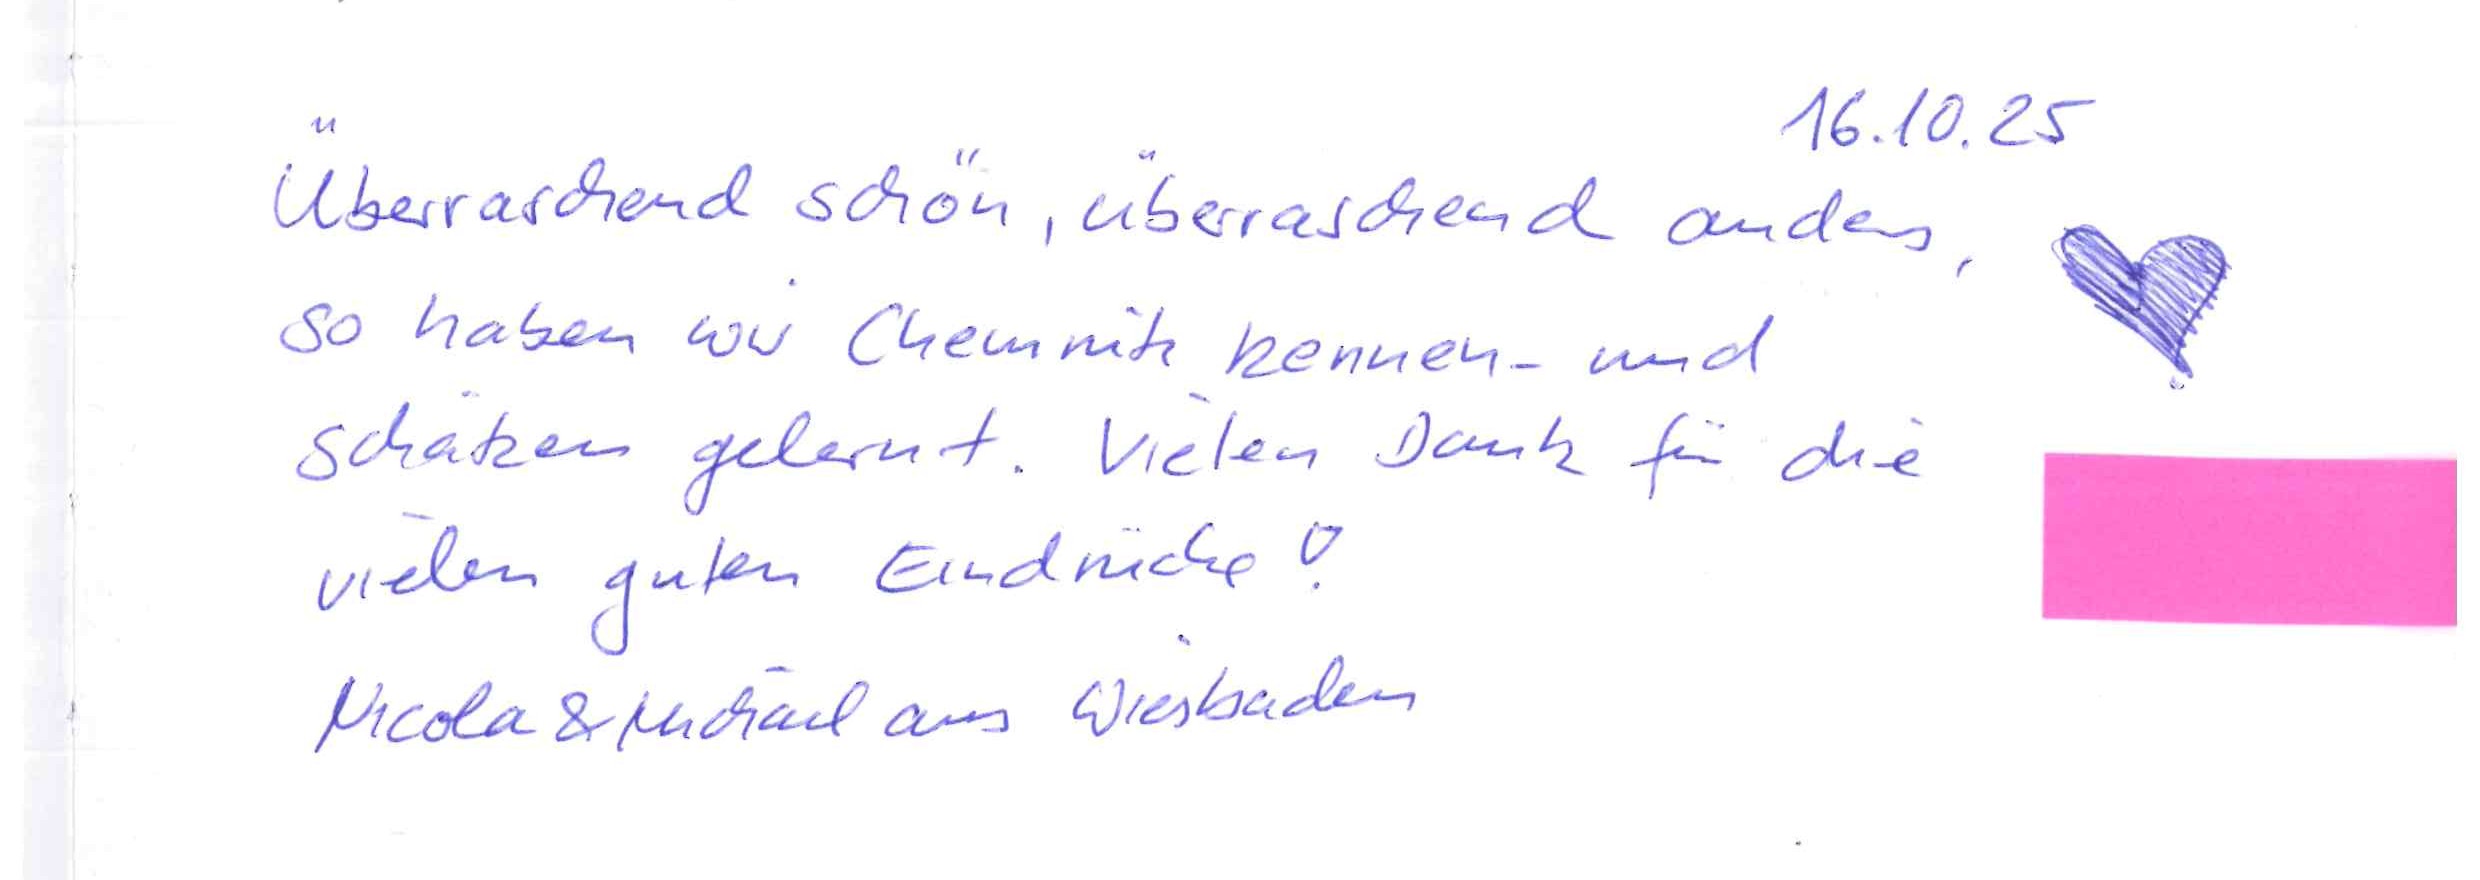 16.10.25
Überraschend schön, überraschend anders,
so haben wir Chemnitz kennen- und
schätzen gelernt. Vielen Dank für die
vielen guten Eindrücke!
Nicola & Michael aus Wiesbaden